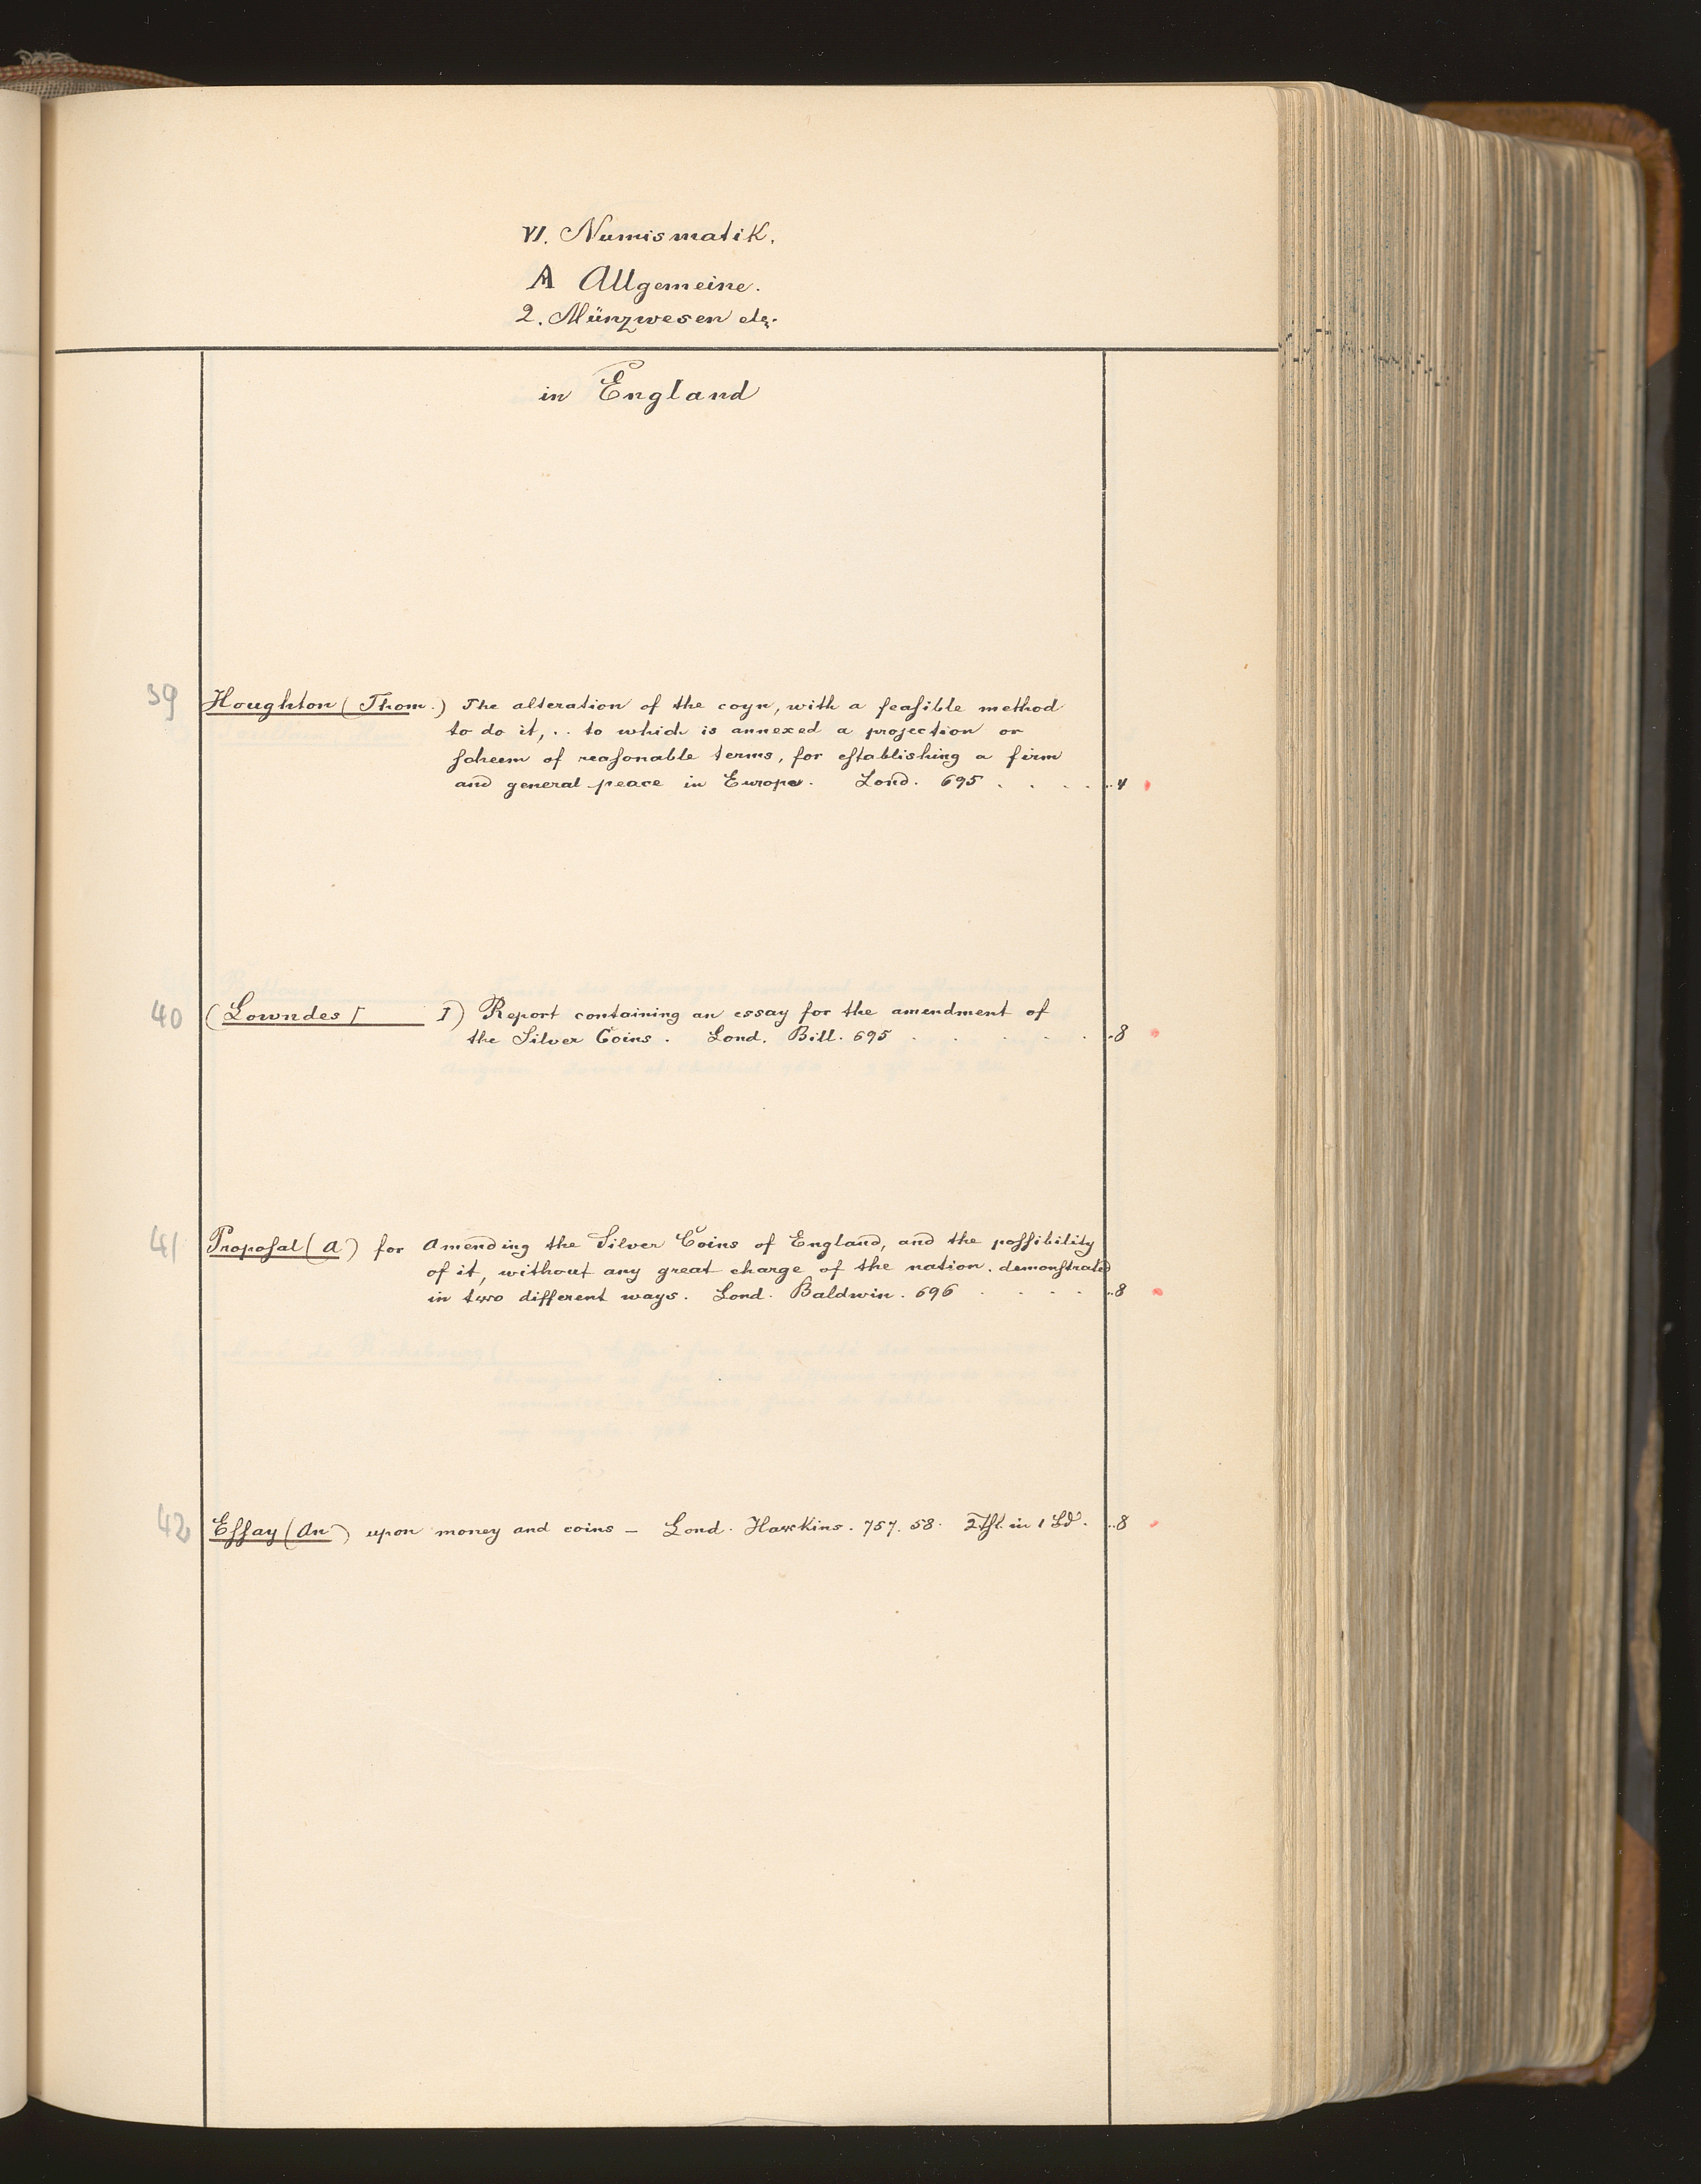 VI. Numismatik.
A Allgemeine.
2. Münzwesen etc.
in England
39 Houghton (Thom.) The alteration of the coyn, with a feaſible method
to do it, .. to which is annexed a projection or
ſcheem of reaſonable terms, for eſtabliſhing a firm
and general peace in Europe. Lond. 695 . . . . ..4
40 (Lowndes [ ]) Report containing an essay for the amendment of
the Silver Coins. Lond. Bill. 695 . . . . . .8
41 Propoſal (A) for Amending the Silver Coins of England, and the poſſibility
of it, without any great charge of the nation. demonſtrated
in two different ways. Lond. Baldwin. 696 . . . . ..8
42 Eſſay (An) upon money and coins – Lond. Hawkins. 757. 58. 2 Thl. in 1 Bd. ..8